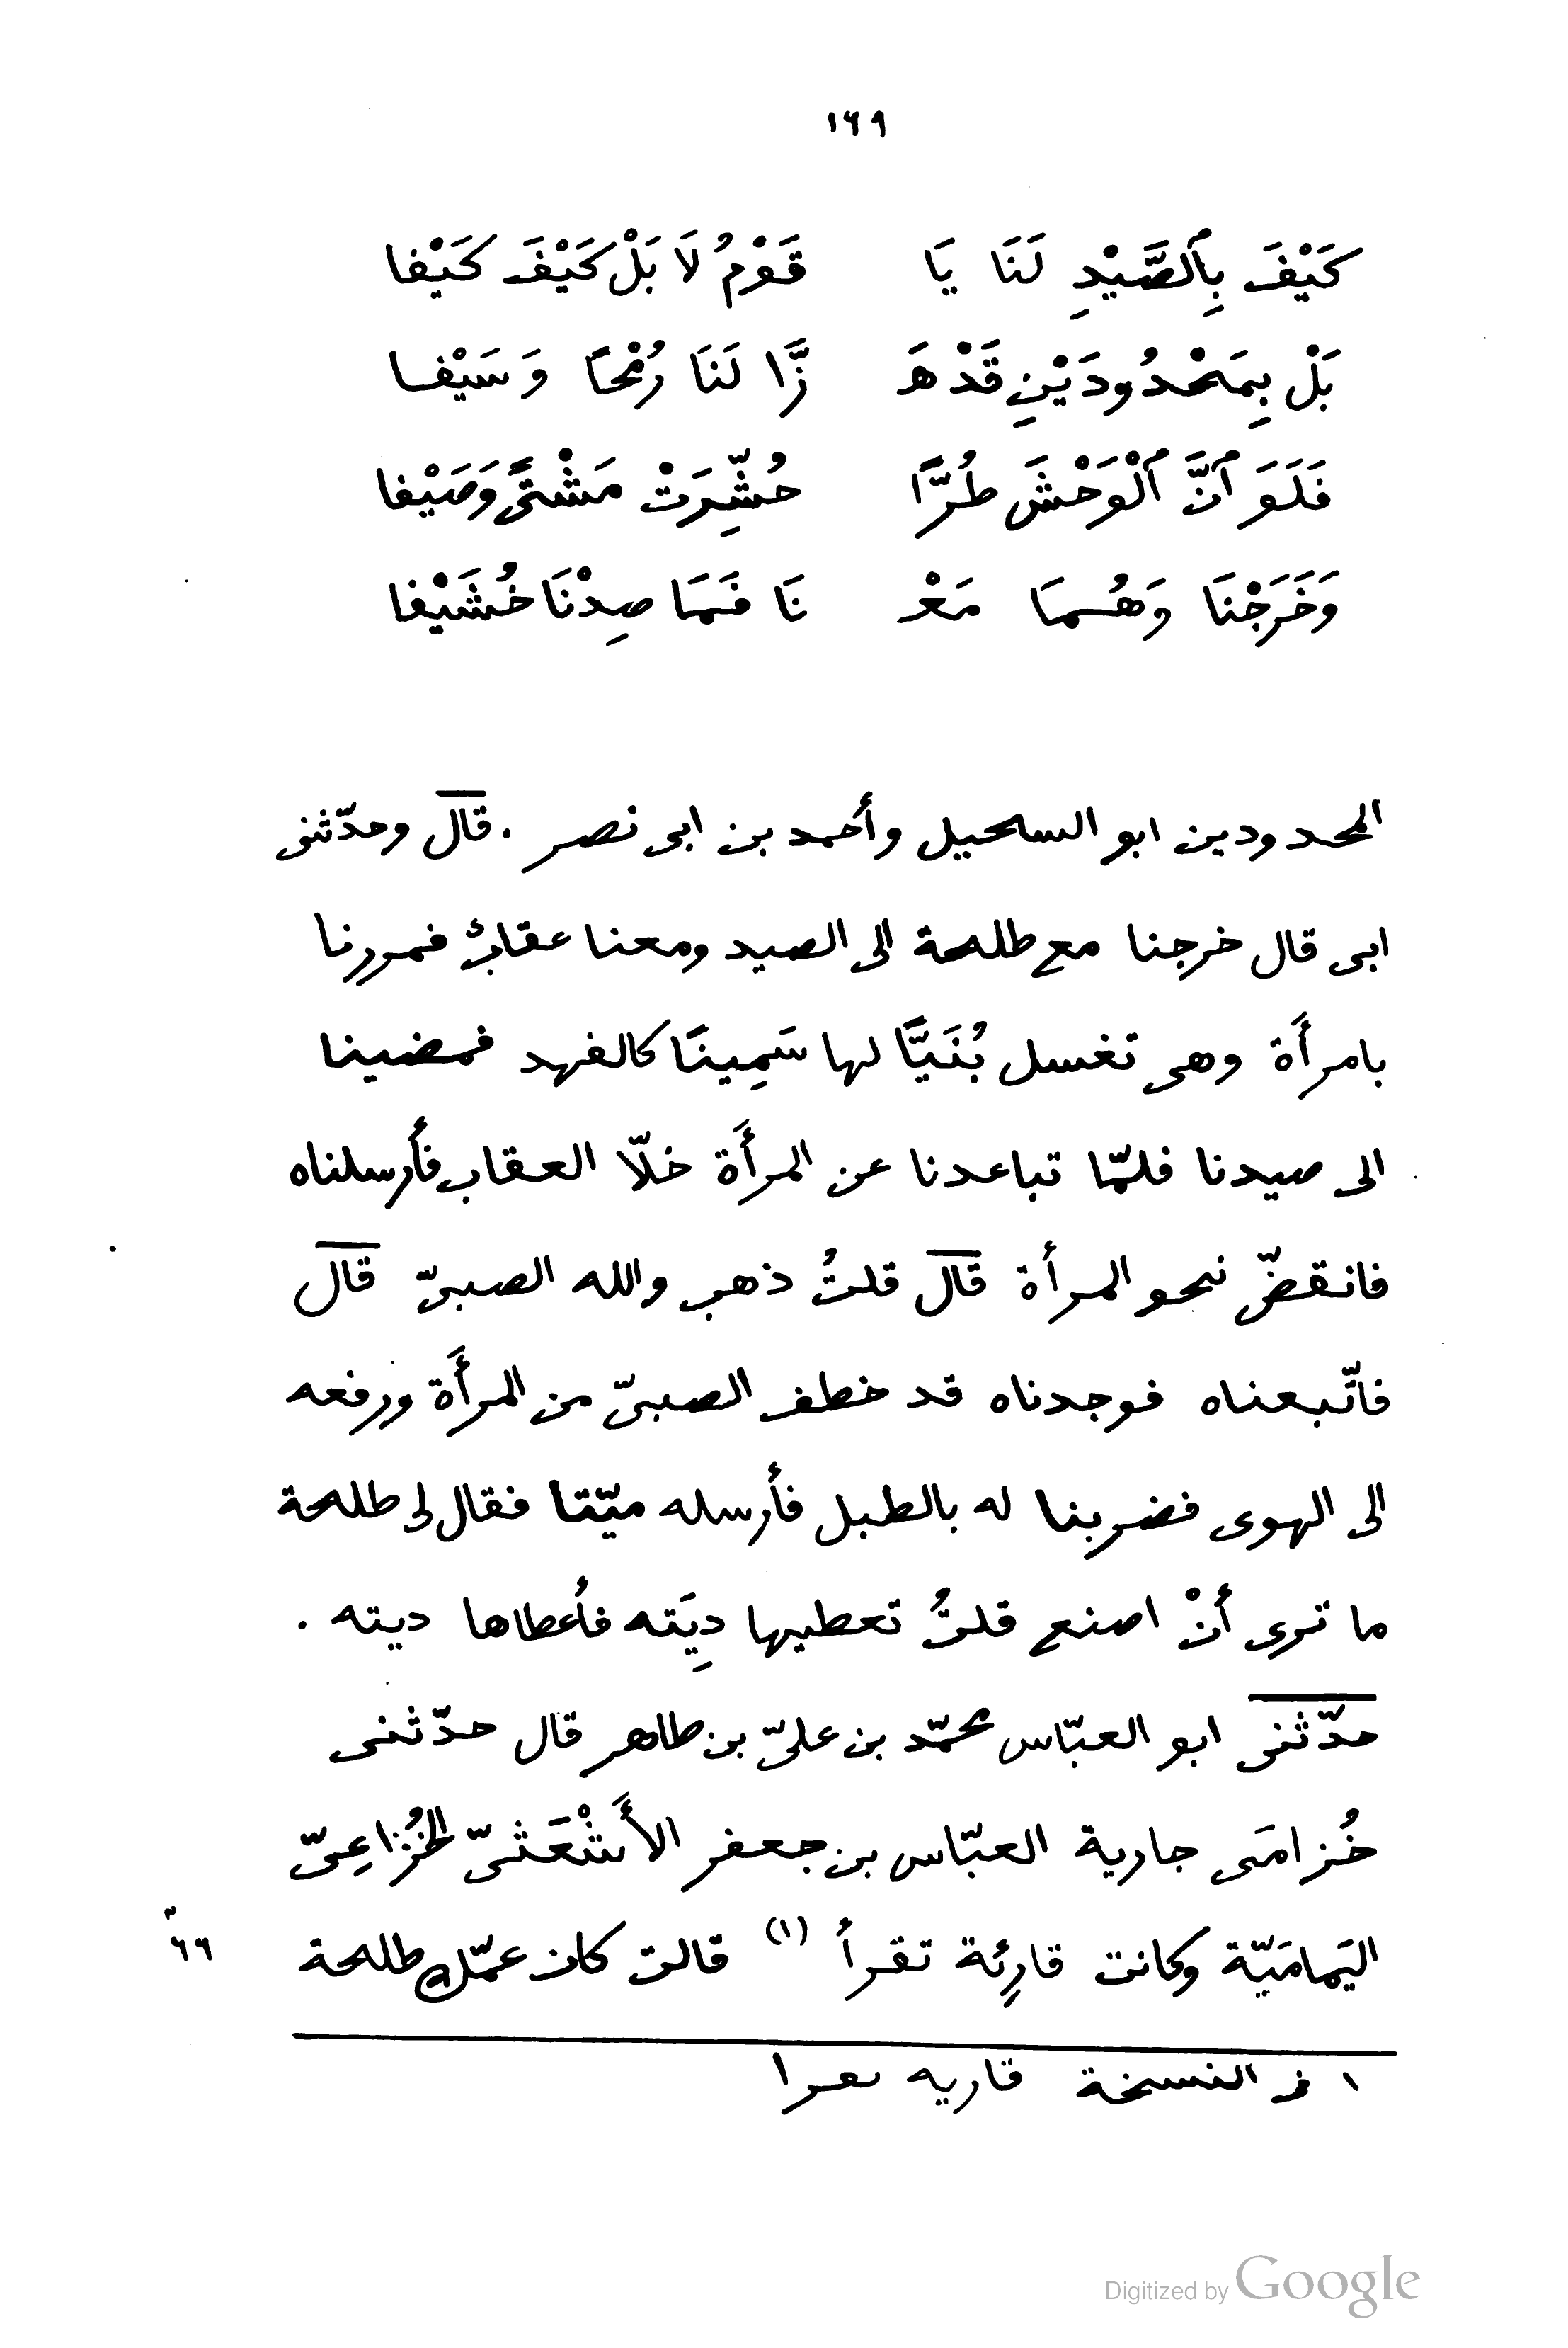 ١٦٩
كَيْفَ بِٱلصَّيْدِ لَنَا يَا قَوْمُ لَا بَلْ كَيْفَ كَيْفا
بَلْ بِمَحْدُودَيْنِ قَدْ هَ زَّا لَنَا رُمْحًا وَسَيْفا
فَلَوَ ٱنَّ ٱلْوَحْشَ طُرًّا حُشِّرَتْ مَشْتًى وَصَيْفا
وَخَرَجْنَا وَهُمَا مَعْ نَا فَمَا صِدْنَا خُشَيْفا
المحدودين ابو السحيل وأحمد بن ابى نصر . قال وحدّثنى
ابى قال خرجنا مع طلحة الى الصيد ومعنا عقابٌ فمررنا
بامرأَة وهى تغسل بُنَيًّا لها سَمِينًا كالفهد فمضينا
الى صيدنا فلمّا تباعدنا عن المرأَة خلّا العقاب فأَرسلناه
فانقضّ نحو المرأة قال قلتُ ذهب والله الصبىّ قال
فاتّبعناه فوجدناه قد خطف الصبىّ من المرأَة ورفعه
الى الهوى فضربنا له بالطبل فأرسله ميّتا فقال لى طلحة
ما ترى أنْ اصنع قلتُ تعطيها دِيَته فأعطاها ديته .
حدّثنى ابو العبّاس محمّد بن علىّ بن طاهر قال حدّثنى
خُزامَى جارية العبّاس بن جعفر الأَشْعَثىّ الخُزاعِىّ
اليَمامَيّة وكانت قارِئة تقرأ (١) قالت كان عمّك طلحة
٦٦
١ فى النسخة قاريه ىعرا
Digitized by Google